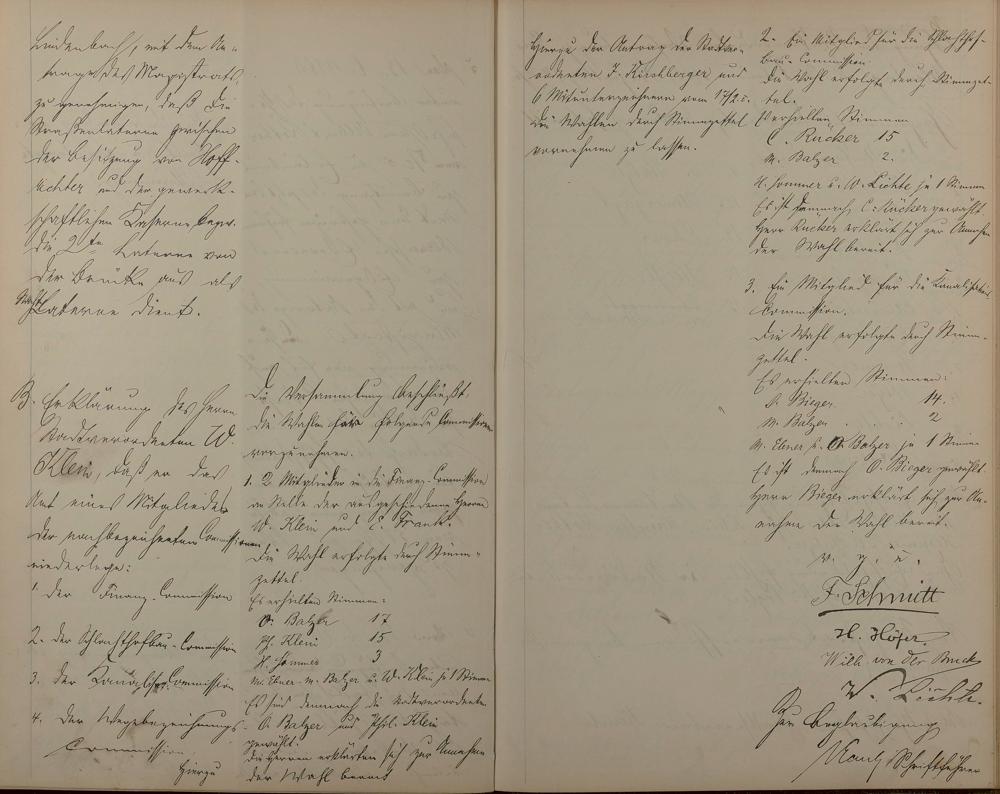 Lindenbach, mit dem An-
trage des Magistrats
zu genehmigen, daß die
Straßenlaterne zwischen
der Besitzung von Hoff-
und der gewerk-
schaftlichen Kaserne bezw.
die 2te Laterne von
der Brücke aus als
Nachtlaterne dient.
3. Erklärung des Herrn
Stadtverordneten W.
Klein, daß er das
Amt eines Mitgliedes
der nachbezeichneten Commissionen
niederlege:
1. der Finanz-Commission
2. der Schlachthofbau-Commission
3. der Kanalis. Commission
4. der Wegebezeichnungs-
Commission.
Hierzu
Die Versammlung beschließt
die Wahlen für folgende Commissionen
vorzunehmen.
1. 2 Mitglieder in die Finanz-Commission
an Stelle der ausgeschiedenen Herren
W. Klein und C. Frank.
Die Wahl erfolgte durch Stimm-
zettel.
Es erhielten Stimmen:
O. Balzer 17
Ph. Klein 15
H. Sommer 3
M. Ebner M. Balzer u. W. Klein je 1 Stimme
Es sind demnach die Stadtverordneten
O. Balzer und Phil. Klein
gewählt.
Die Herren erklärten sich zur Annahme
der Wahl bereit
Hierzu der Antrag der Stadtver-
ordneten J. Kirchberger und
6 Mitunterzeichnern vom 17/2.
die Wahlen durch Stimmzettel
vornehmen zu lassen.
2. Ein Mitglied für die Schlachthof-
bau-Commission.
Die Wahl erfolgte durch Stimmzet-
tel.
Es erhielten Stimmen
C. Rücker 15
M. Balzer 2.
H. Sommer u. W. Lichte je 1 Stimme
Es ist demnach C. Rücker gewählt
Herr Rücker erklärt sich zur Annahme
der Wahl bereit.
3. Ein Mitglied für die Kanalisations-
Commission.
Die Wahl erfolgte durch Stimm-
zettel.
Es erhielten Stimmen:
O. Bieger 14.
M. Balzer 2
M. Ebner u. O. Balzer je 1 Stimme
Es ist demnach O. Bieger gewählt.
Herr Bieger erklärt sich zur An-
nahme der Wahl bereit.
v. g. u.
F. Schmitt
H. Höfer
Wilh. von der Bruck
W. Lichte.
Zur Beglaubigung
Schriftführer